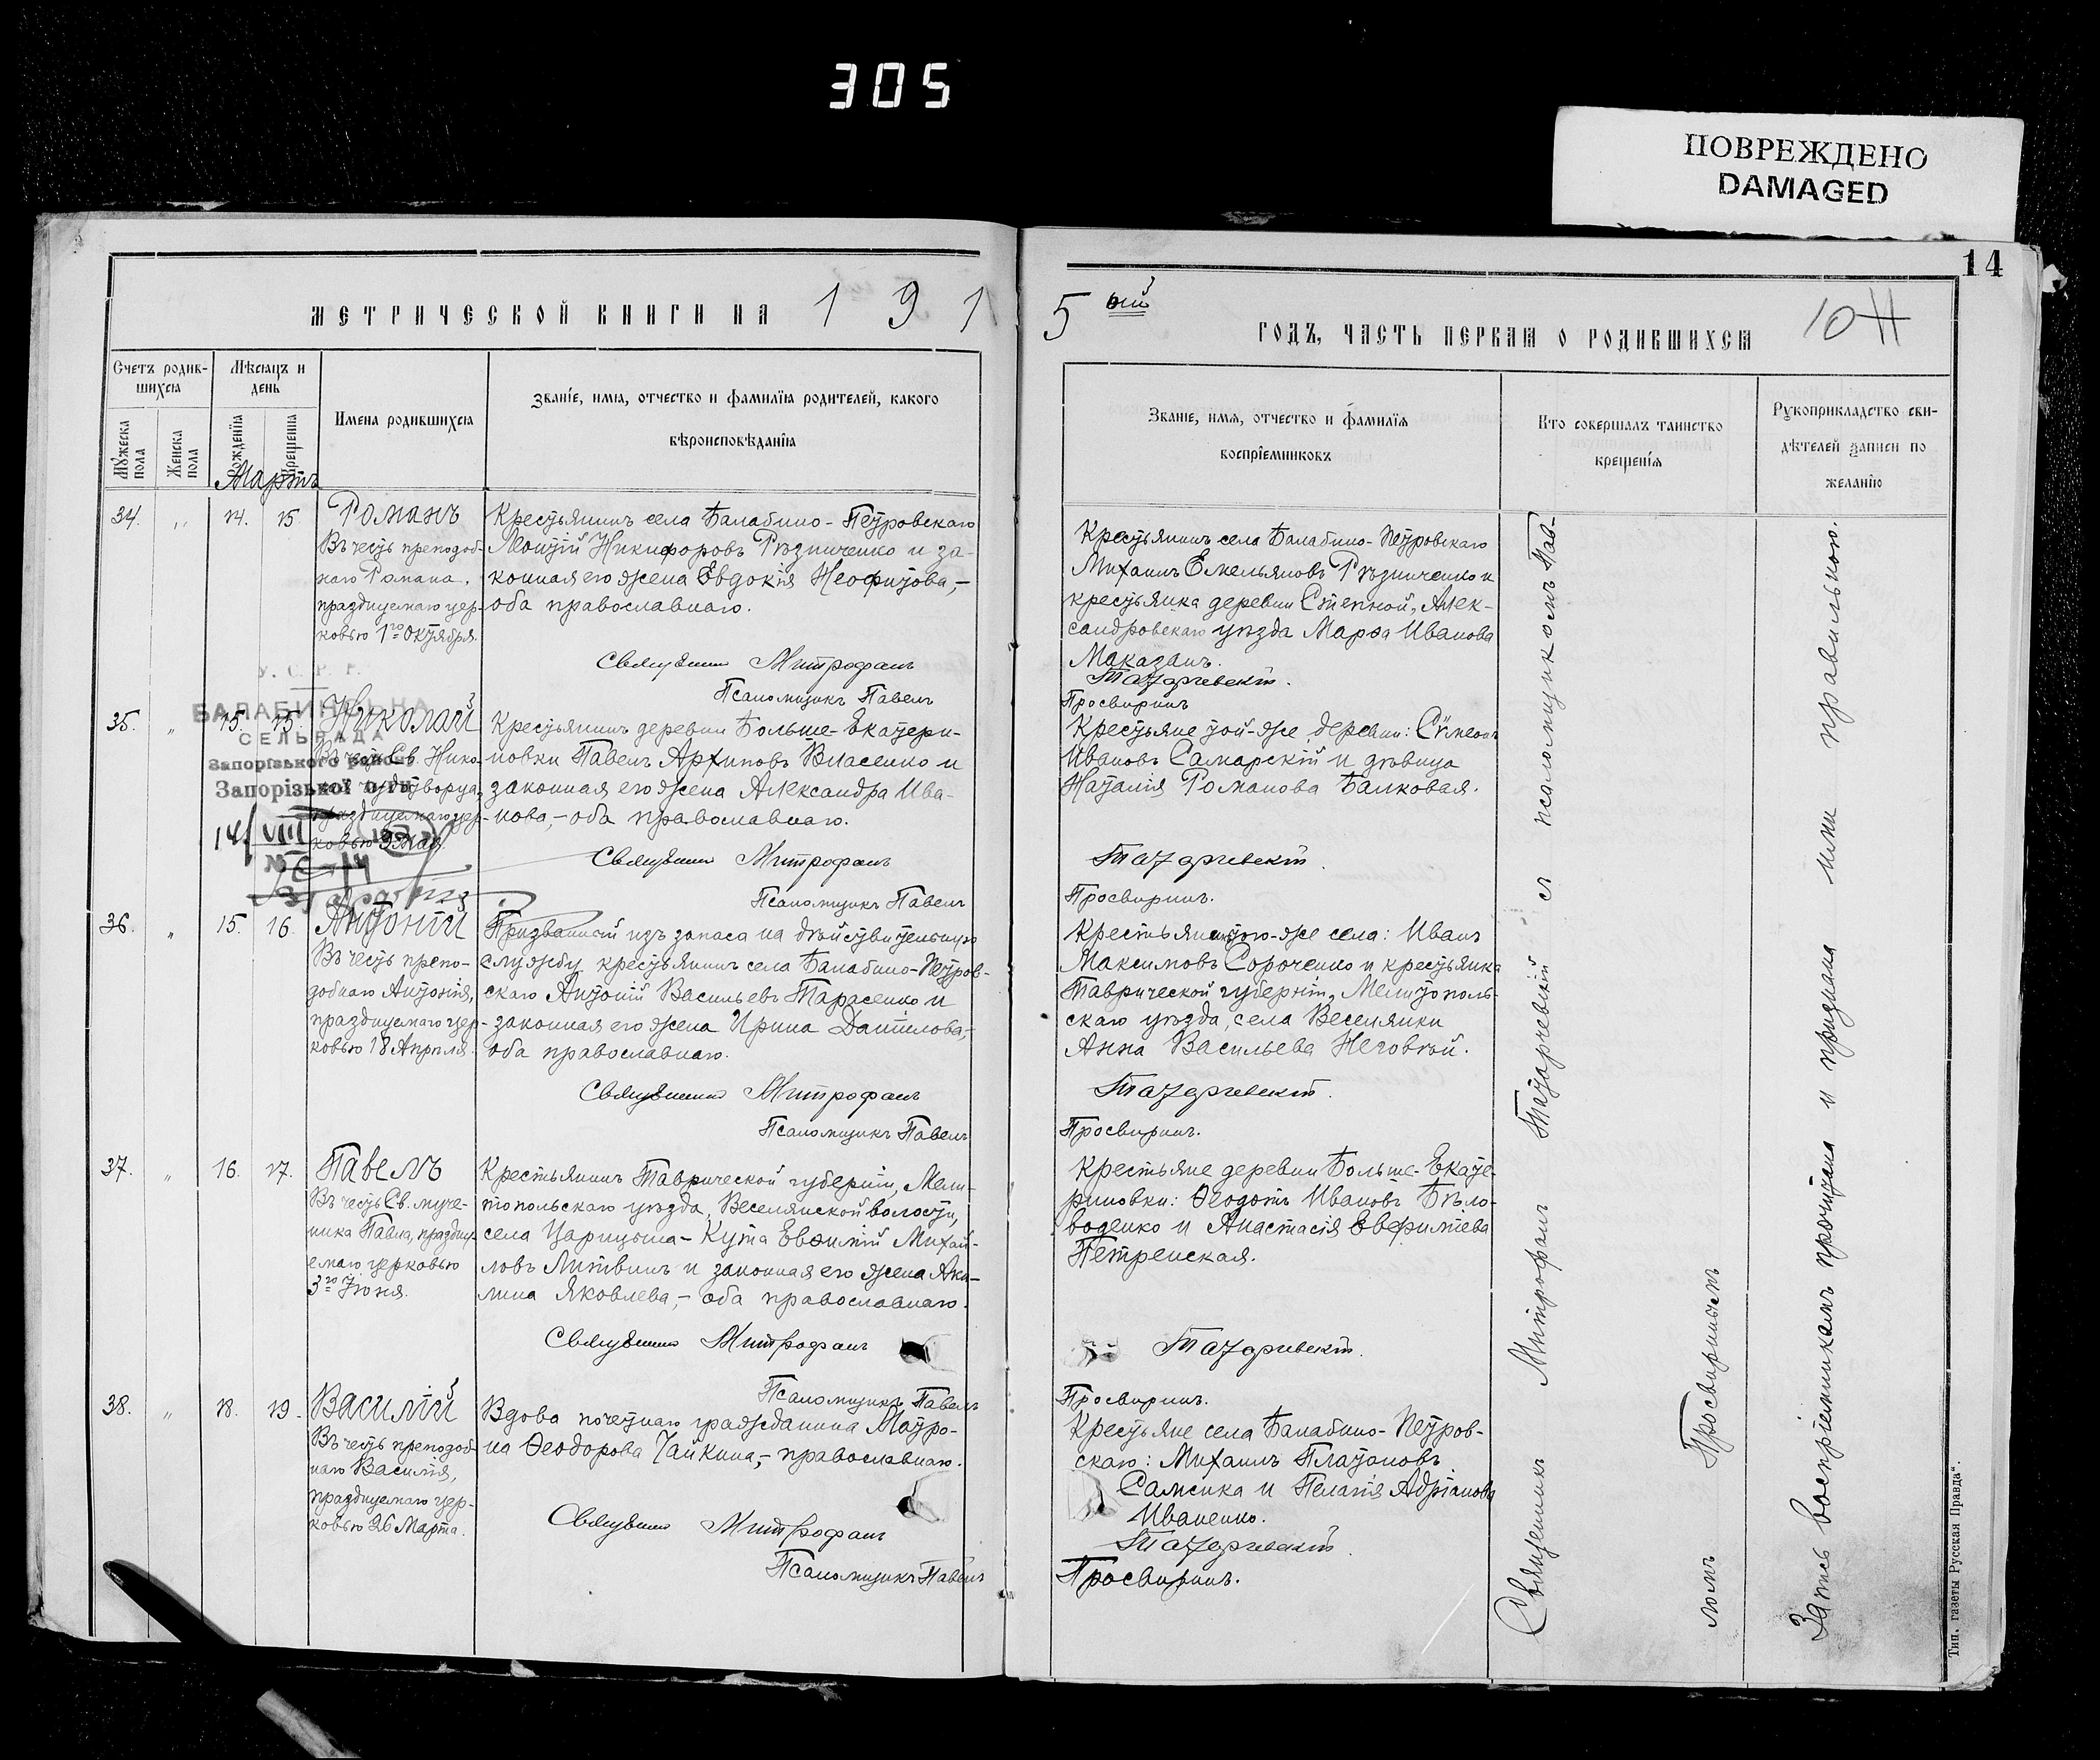 305
ПОВРЕЖДЕНО
DAMAGED
14
МЕТРИЧЕСКОЙ КНИГИ НА 1 9 1
5 ый
ГОДЪ, ЧАСТЬ ПЕРВАЯ О РОДИВШИХСЯ
10
Счетъ родив-
шихся
Мѣсяцъ и
день
Имена родившихся
Званіе, имя, отчество и фамилія родителей, какого
вѣроисповѣданія
Мужеска пола
Женска пола
рожденія
крещенія
Мартъ
Званіе, имя, отчество и фамилія
воспріемниковъ
Кто совершалъ таинство
крещенія
Рукоприкладство сви-
дѣтелей записи по
желанію
34. „ 14. 15.
Романъ
Въ честь преподоб-
наго Романа,
празднуемаго цер-
ковью 1го Октября.
Крестьянинъ села Балабино-Петровскаго
Моисій Никифоровъ Рѣзниченко и за-
конная его жена Евдокія Неофитова,-
оба православнаго.
Священникъ Митрофанъ
Псаломщикъ Павелъ
Крестьянинъ села Балабино-Петровскаго
Михаилъ Емельяновъ Рѣзниченко и
крестьянка деревни Степной, Алек-
сандровскаго уѣзда Марѳа Иванова
Маказанъ.
Татаревскій.
Просвиринъ
У. С. Р. Р.
БАЛАБИНСЬКА
СЕЛЬРАДА
Запорізького району
Запорізької о-ги
14/VIII
35. „ 15. 15.
Николай
Въ честь Св. Нико-
лая чудотворца,
празднуемаго цер-
ковью 9 Мая.
Крестьянинъ деревни Больше-Екатери-
новки Павелъ Архиповъ Власенко и
законная его жена Александра Ива-
нова,-оба православнаго.
Священникъ Митрофанъ
Псаломщикъ Павелъ
Крестьяне той-же деревни: Сѵмеонъ
Ивановъ Самарскій и дѣвица
Наталія Романова Балковая.
Татаревскій.
Просвиринъ.
36. „ 15. 16.
Антоній
Въ честь препо-
добнаго Антонія,
празднуемаго цер-
ковью 18 Апрѣля.
Призванный изъ запаса на дѣйствительную
службу крестьянинъ села Балабино-Петров-
скаго Антоній Васильевъ Тарасенко и
законная его жена Ирина Даніилова,-
оба православнаго.
Священникъ Митрофанъ
Псаломщикъ Павелъ
Крестьянинъ того-же села: Иванъ
Максимовъ Сороченко и крестьянка
Таврической губерніи, Мелитополь-
скаго уѣзда, села Веселянки
Анна Васильева Неговѣй.
Татаревскій.
Просвиринъ.
37. „ 16. 17.
Павелъ
Въ честь Св. муче-
ника Павла, праздну-
емаго церковью
3го Іюня.
Крестьянинъ Таврической губерніи, Мели-
топольскаго уѣзда, Веселянской волости,
села Царицына-Кута Евѳимій Михай-
ловъ Литвинъ и законная его жена Аки-
лина Яковлева,- оба православнаго.
Священникъ Митрофанъ
Псаломщикъ Павелъ
Крестьяне деревни Больше-Екате-
риновки: Ѳеодотъ Ивановъ Бѣло-
воденко и Анастасія Евфиміева
Петренская.
Татаревскій.
Просвиринъ.
38. „ 18. 19.
Василій
Въ честь преподоб-
наго Василія,
празднуемаго цер-
ковью 26 Марта.
Вдова почетнаго гражданина Матро-
на Ѳеодорова Чайкина,- православнаго.
Священникъ Митрофанъ
Псаломщикъ Павелъ
Крестьяне села Балабино-Петров-
скаго: Михаилъ Платоновъ
Самсика и Пелагія Адріанова
Иваненко.
Татаревскій.
Просвиринъ.
Священникъ Митрофанъ Татаревскій съ псаломщикомъ Пав-
ломъ Просвиринымъ
Запись воспріемникамъ прочитана и признана ими правильною.
Тип. газеты „Русская Правда“.